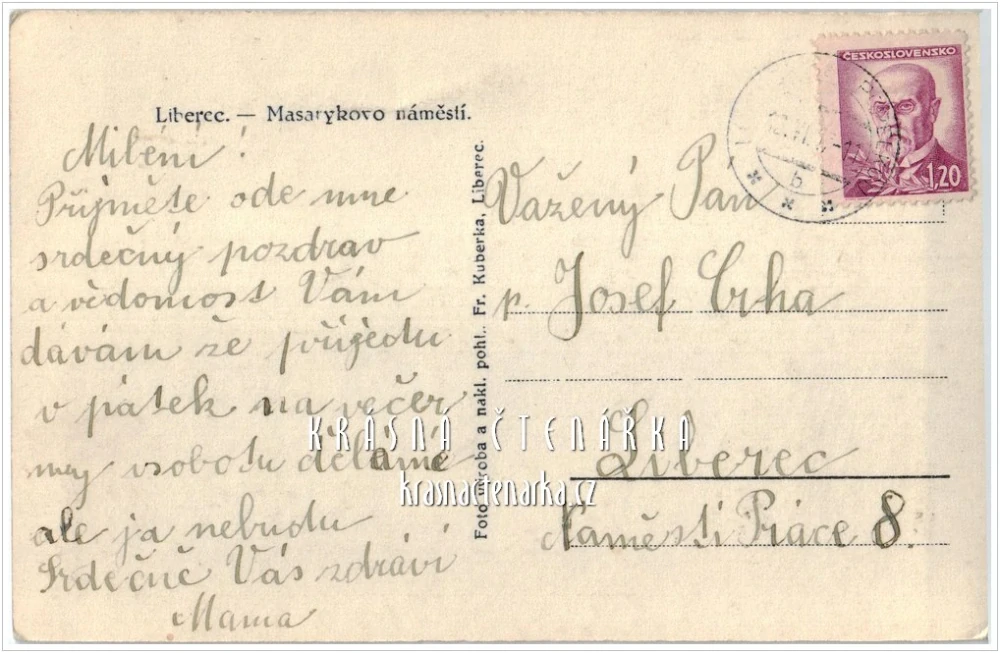 ČESKOSLOVENSKO
1,20
b
Liberec. — Masarykovo náměstí.
Milení!
Přijměte ode mne
srdečný pozdrav
a vědomost Vám
dávám že přijedu
v pátek na večer
my vsobotu děláme
ale ja nebudu
Srdečně Vás zdraví
Mama
Foto výroba a nakl. pohl.. Fr. Kuberka, Liberec.
Važený Pan
p. Josef Crha
Liberec
Naměstí Práce 8.
KRÁSNÁ ČTENÁŘKA
krasnactenarka.cz